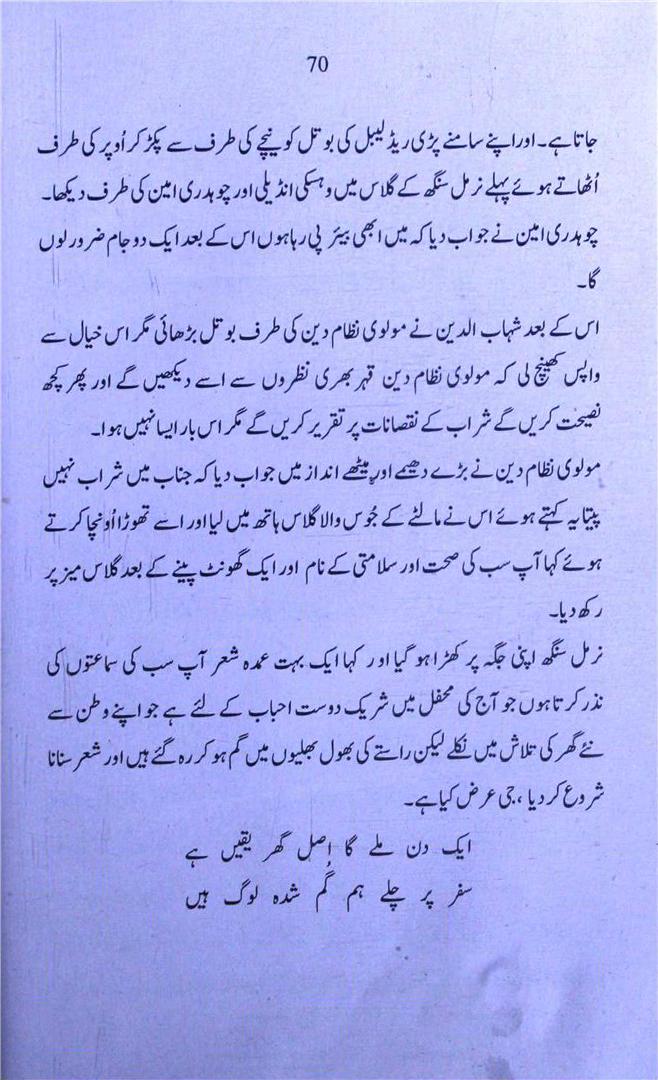 70
جاتا ہے۔ اور اپنے سامنے پڑی ریڈ لیبل کی بوتل کو نیچے کی طرف سے پکڑ کر اُوپر کی طرف
اُٹھاتے ہوئے پہلے نرمل سنگھ کے گلاس میں وہسکی انڈیلی اور چوہدری امین کی طرف دیکھا۔
چوہدری امین نے جواب دیا کہ میں ابھی بیئر پی رہا ہوں اس کے بعد ایک دو جام ضرور لوں
گا۔
اس کے بعد شہاب الدین نے مولوی نظام دین کی طرف بوتل بڑھائی مگر اس خیال سے
واپس کھینچ لی کہ مولوی نظام دین قہر بھری نظروں سے اسے دیکھیں گے اور پھر کچھ
نصیحت کریں گے شراب کے نقصانات پر تقریر کریں گے مگر اس بار ایسا نہیں ہوا۔
مولوی نظام دین نے بڑے دھیمے اور میٹھے انداز میں جواب دیا کہ جناب میں شراب نہیں
پیتا یہ کہتے ہوئے اس نے مالٹے کے جُوس والا گلاس ہاتھ میں لیا اور اسے تھوڑا اُونچا کرتے
ہوئے کہا آپ سب کی صحت اور سلامتی کے نام اور ایک گھونٹ پینے کے بعد گلاس میز پر
رکھ دیا۔
نرمل سنگھ اپنی جگہ پر کھڑا ہو گیا اور کہا ایک بہت عمدہ شعر آپ سب کی سماعتوں کی
نذر کرتا ہوں جو آج کی محفل میں شریک دوست احباب کے لئے ہے جو اپنے وطن سے
نئے گھر کی تلاش میں نکلے لیکن راستے کی بھول بھلیوں میں گم ہو کر رہ گئے ہیں اور شعر سنانا
شروع کر دیا ، جی عرض کیا ہے۔
ایک دن ملے گا اصل گھر یقیں ہے
سفر پر چلے ہم گُم شدہ لوگ ہیں